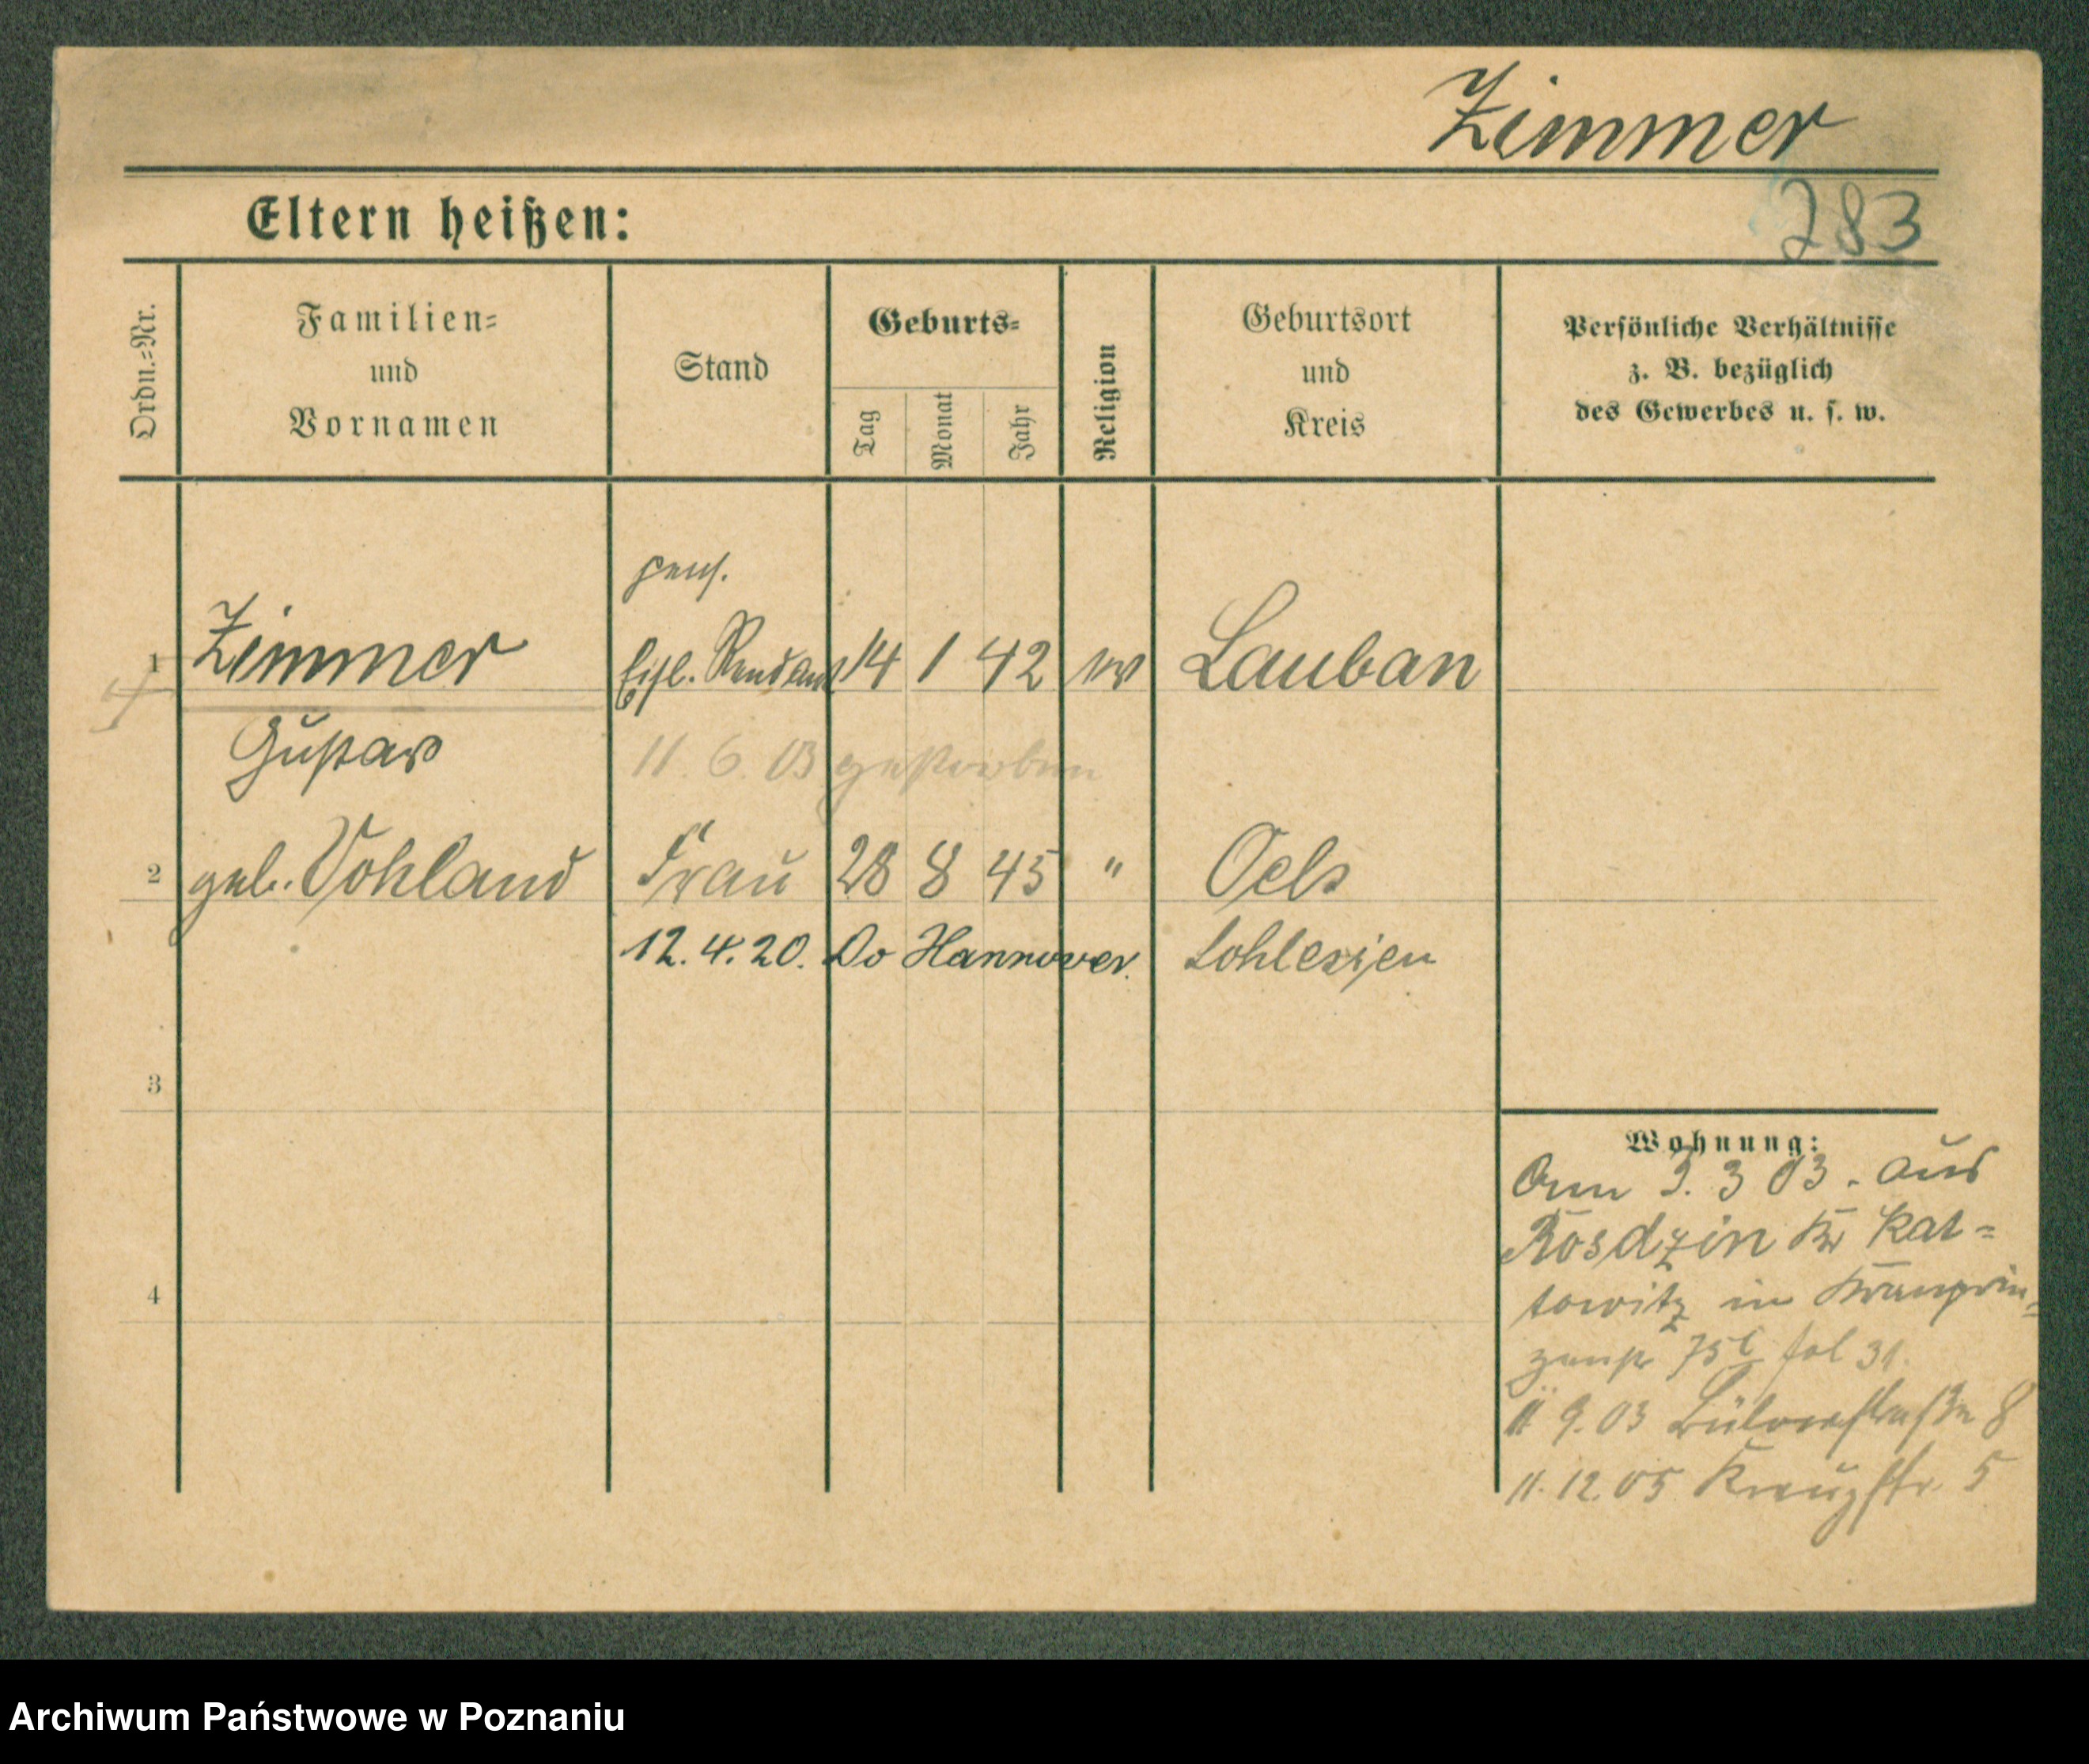 Zimmer
283
Eltern heißen:
Ordn.=Nr.
Familien=
und
Vornamen
Stand
Geburts=
Tag
Monat
Jahr
Religion
Geburtsort
und
Kreis
Persönliche Verhältnisse
z. B. bezüglich
des Gewerbes u. s. w.
pens.
1 Zimmer Rendant 14 1 42 Lauban
Gustav 11. 6. 03 gestorben
2 geb. Vohland Frau 28 8 45 " Oels
12. 4. 20. Hannover. Schlesien
3
Wohnung:
3. 3 03. aus
Rosdzin Kr Kat=
4
towitz in Kronprin=
zenstr 75b fol 31.
11 9. 03 Bülowstraße 8
11. 12. 05 Kreuzstr. 5
Archiwum Państwowe w Poznaniu